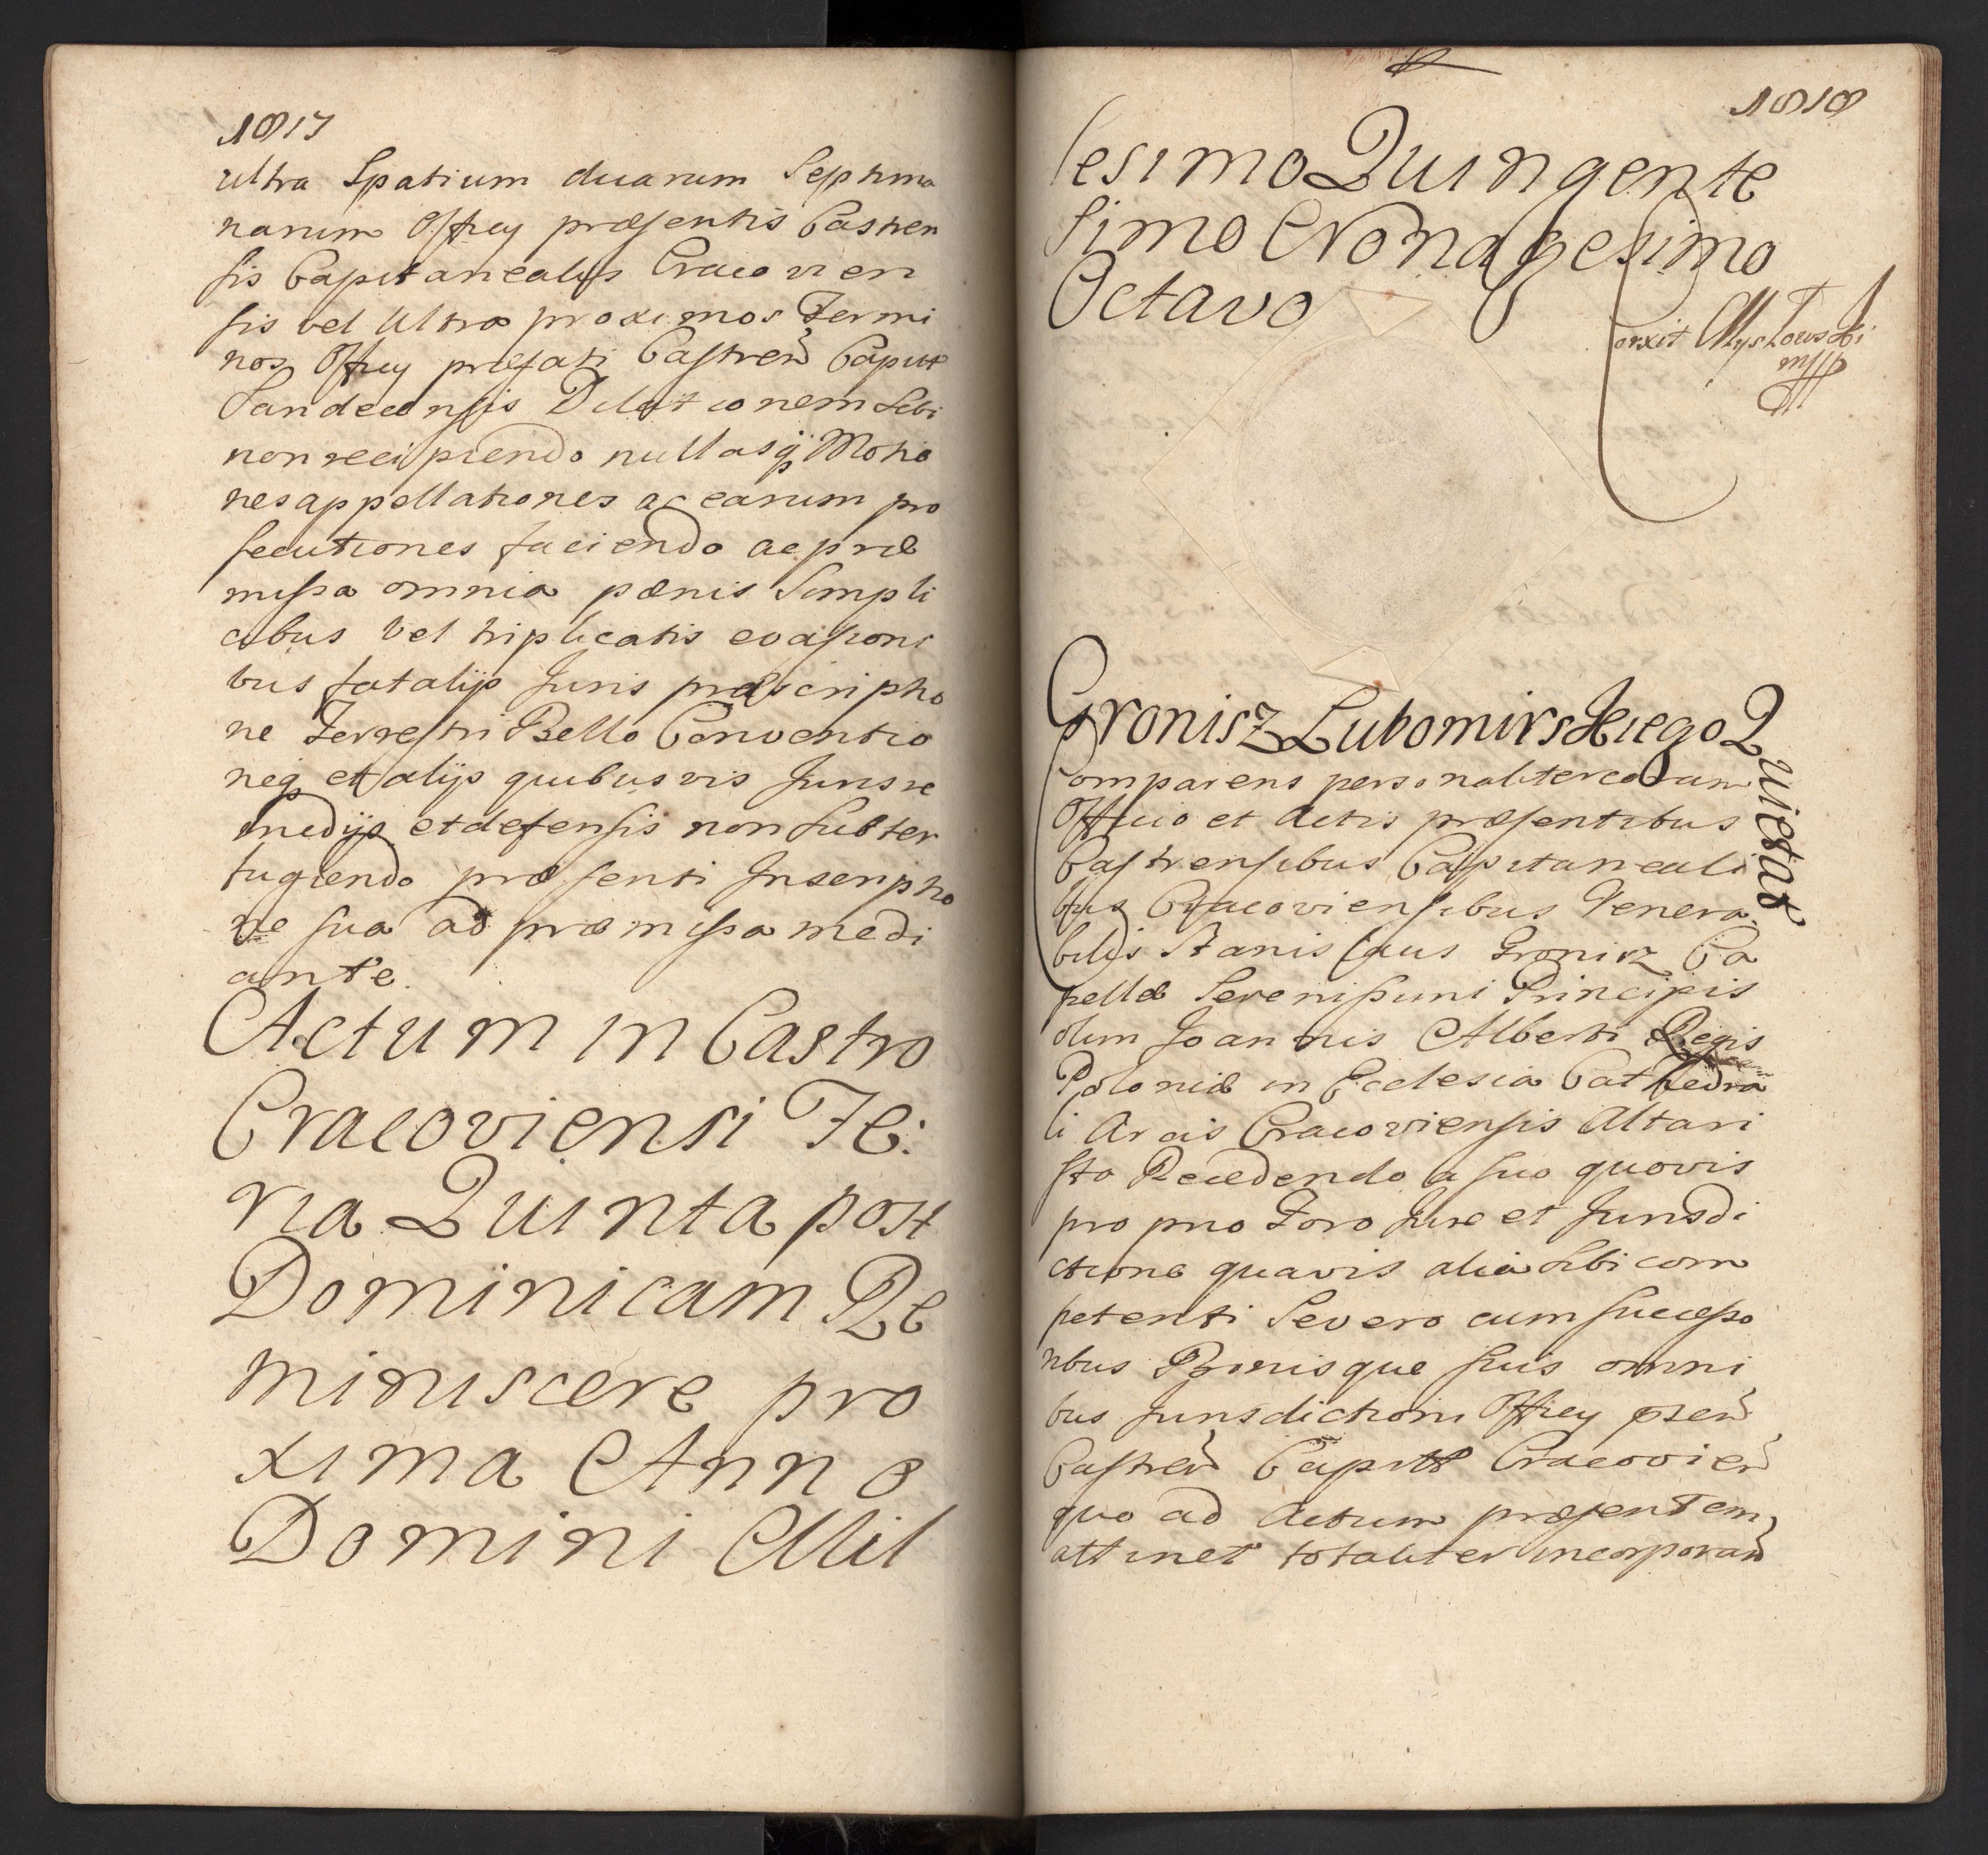 1817
ultra Spatium duarum Septima
narum Officy præsentis Castren
sis Capitanealis Cracovien
sis vel Ultra proximos Termi
nos Officy præfati Castren Capit
Sandecensis Dilationem Sibi
non recipiendo nullasq Motio
nes appellationes ac earum pro
secutiones faciendo ac præ
missa omnia pœnis Simpli
cibus vel triplicatis evasioni
bus fatalijs Juris præscriptio
ne Terrestri Bello Conventio
neq et alijs quibusvis Juris re
medijs et defensis non Subter
fugiendo præsenti Inscriptio
ne sua ad præmissa medi
ante.
Actum in Castro
Cracoviensi Fe:
ria Quinta post
Dominicam Re
miniscere pro
xima Anno
Domini Mil
1818
lesimo Quingente
simo Nonagesimo
Octavo
Gronisz Lubomirskiego Quietat
Comparens personaliter coram
Officio et Actis præsentibus
Castrensibus Capitaneali
bus Cracoviensibus Venera
bilis Stanislaus Gronisz Ca
pellæ Serenissimi Principis
olim Joannis Alberti Regis
Poloniæ in Ecclesia Cathedra
li Arcis Cracoviensis Altari
sta Recedendo a suo quovis
proprio Foro Jure et Jurisdi
ctione quavis alia Sibi com
petenti Severo cum Successo
ribus Bonisque suis omni
bus Jurisdictioni Officy præn
Castren Capitt Cracovien
quo ad Actum præsentem
attinet totaliter incorporan